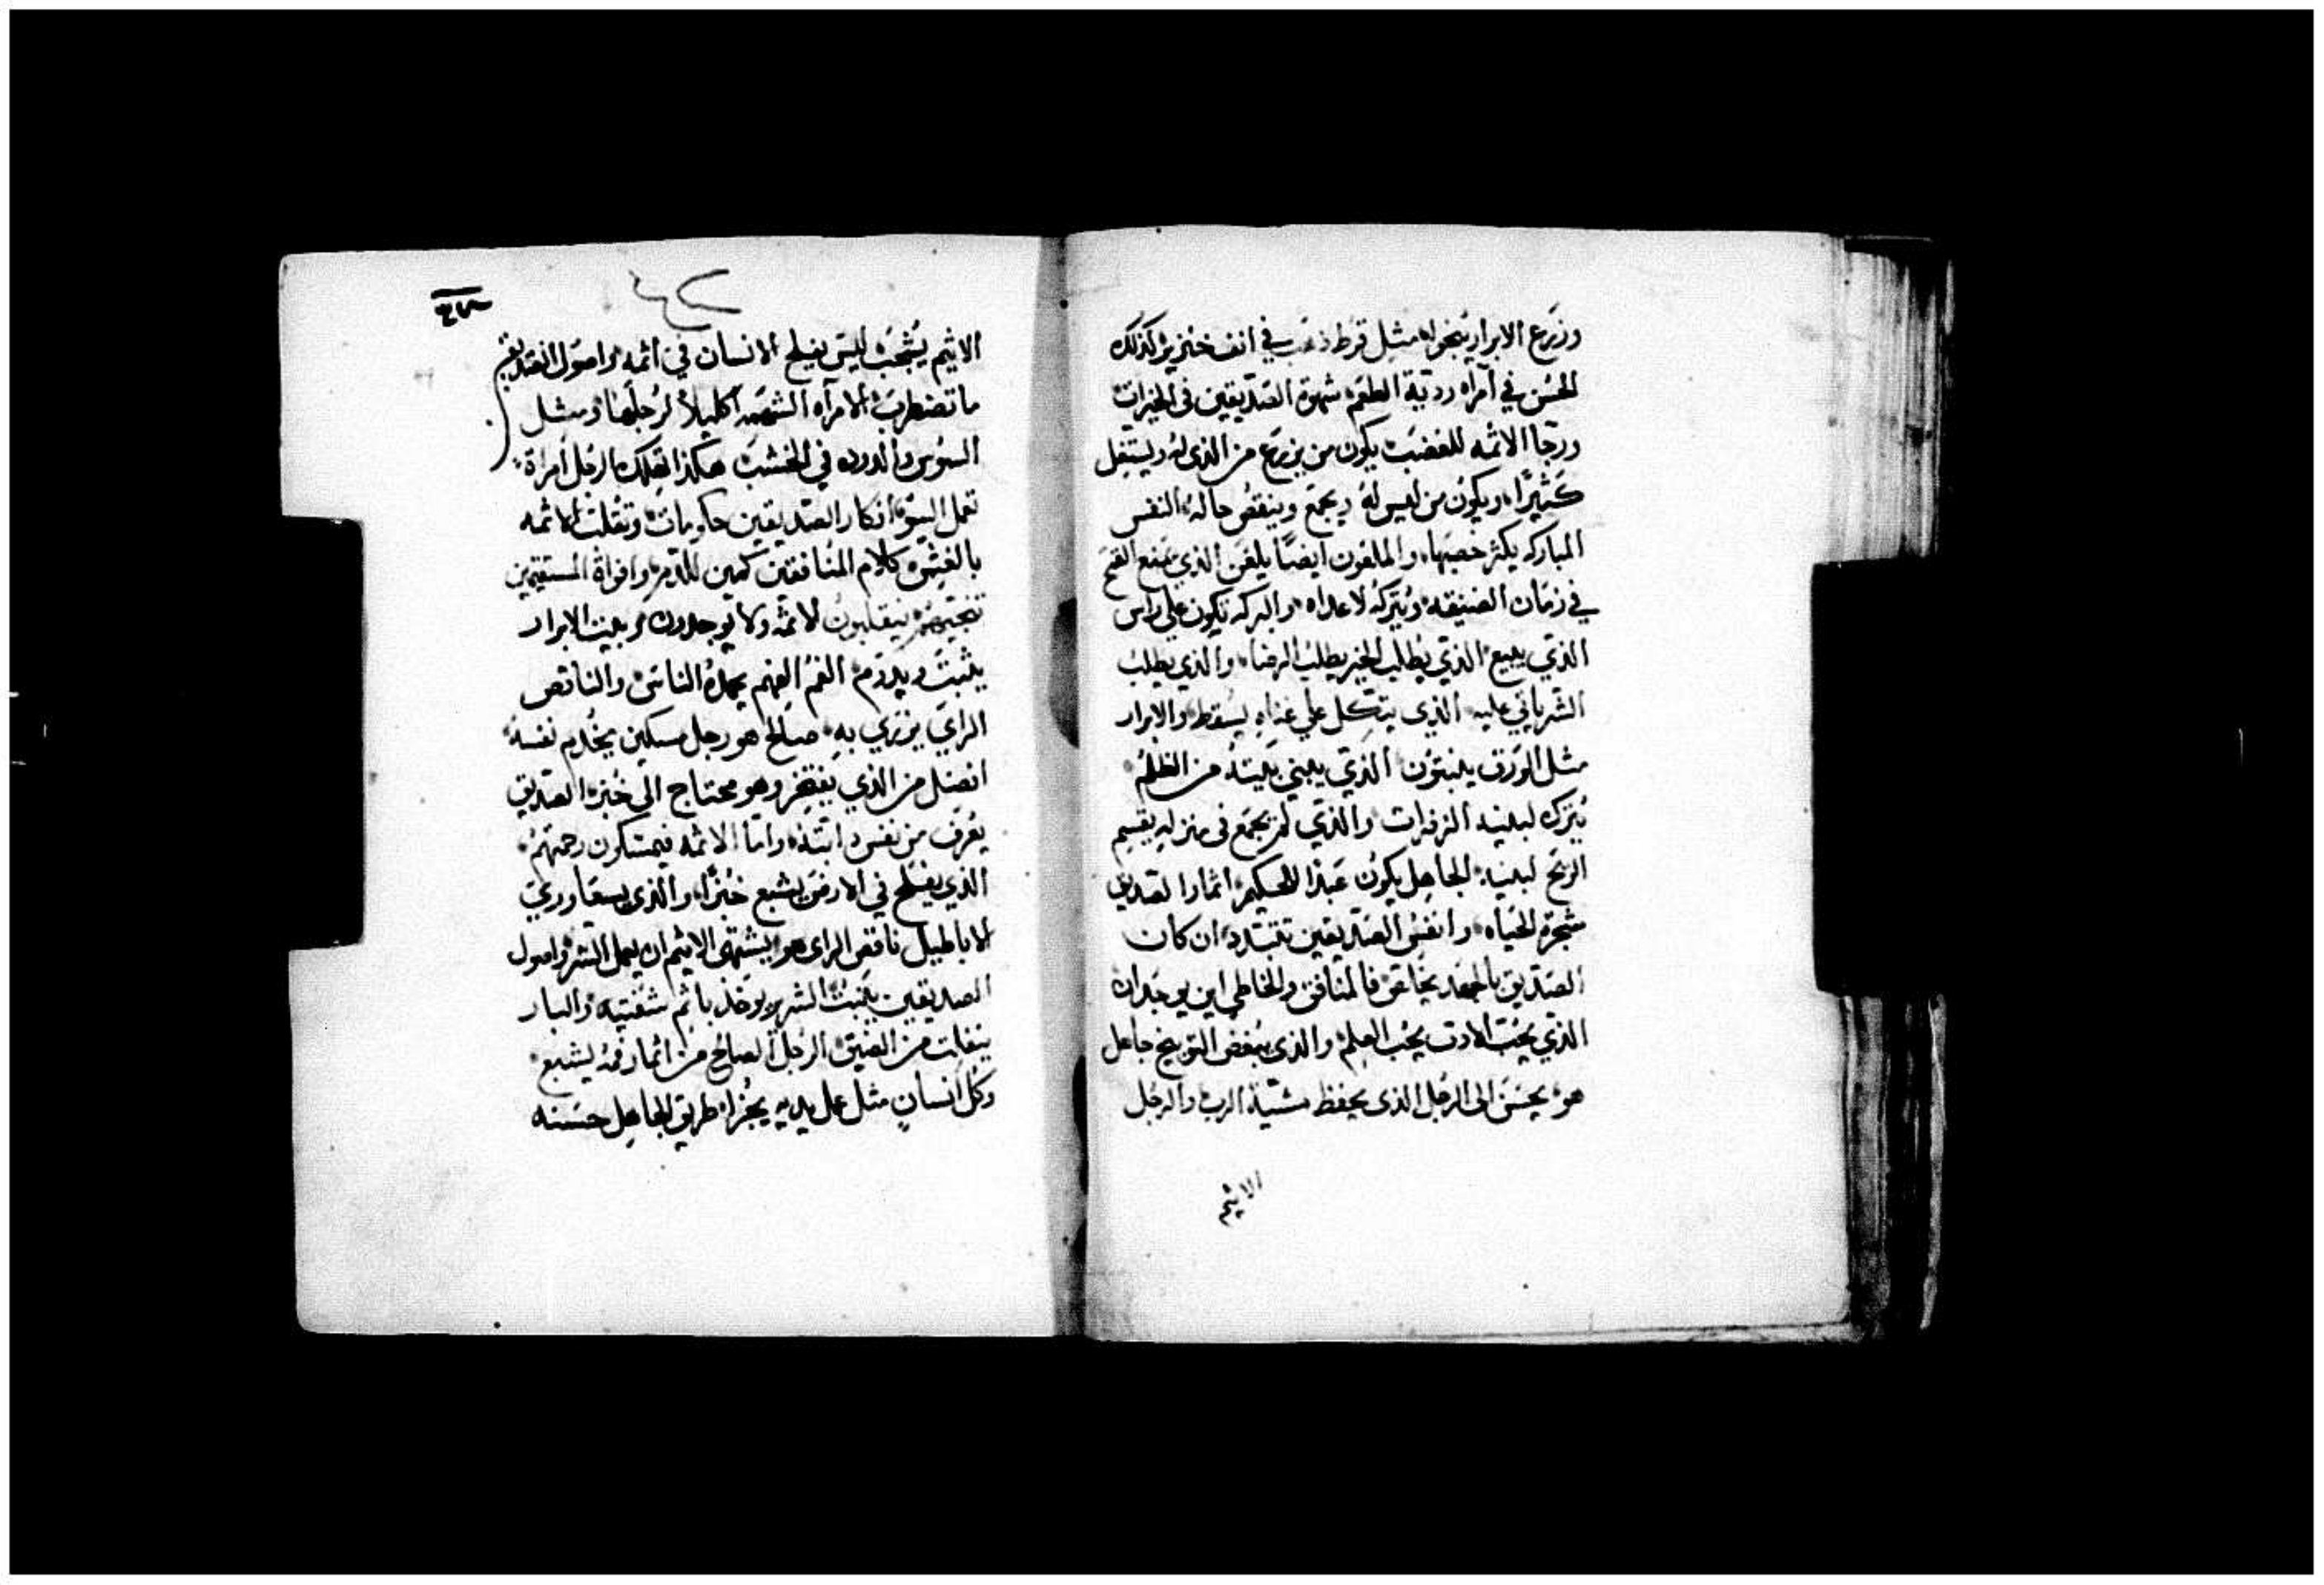 وزرع الابرار ينجوا مثل قرط ذهب في انف خنزير كذلك
الحسن في امراه ردية الطعم شهوة الصديقين في الخيرات
ورجا الاثمه للغضب يكون من يزرع من الذي له ويستغل
كثيرًا ويكون من ليس له ويجمع وينقص حاله النفس
المباركه يكثر خصبها والملعون ايضًا يلعن الذي يمنع القمح
في زمان الضيقه ويتركه لاعداه والبركه تكون علي راس
الذي يبيع الذي يطلب الخير يطلب الرضا والذي يطلب
الشر ياتي عليه الذي يتكل علي غناه يسقط والابرار
مثل الورق ينبتون الذي يبني بيته من الظلم
يترك لبنيه الزفرات والذي لم يجمع في منزله يقسم
الريح لبنيه الجاهل يكون عبدًا للحكيم اثمار الصديق
شجرة الحياه وانفس الصديقين تتبدد ان كان
الصديق بالجهد يخلص فالمنافق والخاطي اين يوجدان
الذي يحب الادب يحب العلم والذي يبغض التوبيخ جاهل
هو يحسن الى الرجل الذي يحفظ مشية الرب والرجل
الاثيم
الاثيم يشجب ليس يفلح الانسان في اثمه واصول الصديقين
ما تضطرب الامراه الشهمه اكليلاً لرجلها ومثل
السوس والدوده في الخشب هكذا تهلك الرجل امراة
تعمل السوء افكار الصديقين حكومات وتفلت الاثمه
بالغش كلام المنافقين كمين للدم وافواة المستقيمين
تنجيهم ينقلبون الاثمه ولا يوجدون وبيت الابرار
يثبت ويدوم الفم الفهم يمده الناس والناقص
الراي يزري به صالح هو رجل مسكين يخدم نفسه
افضل من الذي يفتخر وهو محتاج الى خبز الصديق
يعرف من نفس دابته واما الاثمه فيمسكون رحمتهم
الذي يفلح في الارض يشبع خبزًا والذي يسعا وري
الاباطيل ناقص الراى هو يشتهى الاثيم ان يعمل الشر واصول
الصديقين ينبت الشرير يوخذ باثم شفتيه والبار
ينفلت من الضيق الرجل الصالح من اثمار فمه يشبع
وكل انسان مثل عمل يديه يجزا طريق الجاهل حسنه